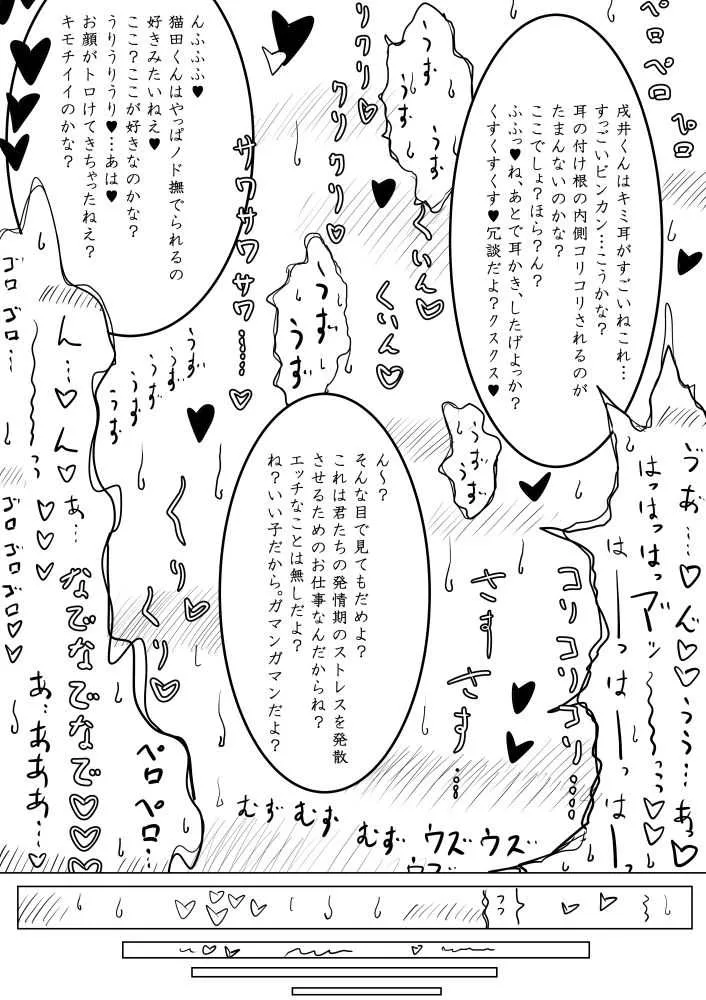 戌井くんはキミ耳がすごいねこれ…
すっごいビンカン…こうかな？
耳の付け根の内側コリコリされるのが
たまんないのかな？
ここでしょ？ほら？ん？
ふふっ♥ね、あとで耳かき、したげよっか？
くすくすくす♥冗談だよ？クスクス♥
んふふふ♥
猫田くんはやっぱノド撫でられるの
好きみたいねえ♥
ここ？ここが好きなのかな？
うりうりうり♥…あは♥
お顔がトロけてきちゃったねえ？
キモチイイのかな？
ん～？
そんな目で見てもだめよ？
これは君たちの発情期のストレスを発散
させるためのお仕事なんだからね？
エッチなことは無しだよ？
ね？いい子だから。ガマンガマンだよ？
ペロペロ
ペロ
うず
うず
うず
リクリ♡
クリクリ♡
くいん♡
くいん♡
サワサワサワサワ……♡
うず
うず
うず
うず
うず
うず
うず
うず
ゴロゴロ…
ん…♡ん♡
あ…
ゴロゴロゴロ♡♡
なでなでなで♡♡♡
あ…あああ…♡
くりくり♡♡
ペロペロ…
さすさす…
コリコリコリ……
はっはっはっ
はーっはーっはーっ
うう…あっ♡
むず
むず
むず
ウズウズ
ウズ